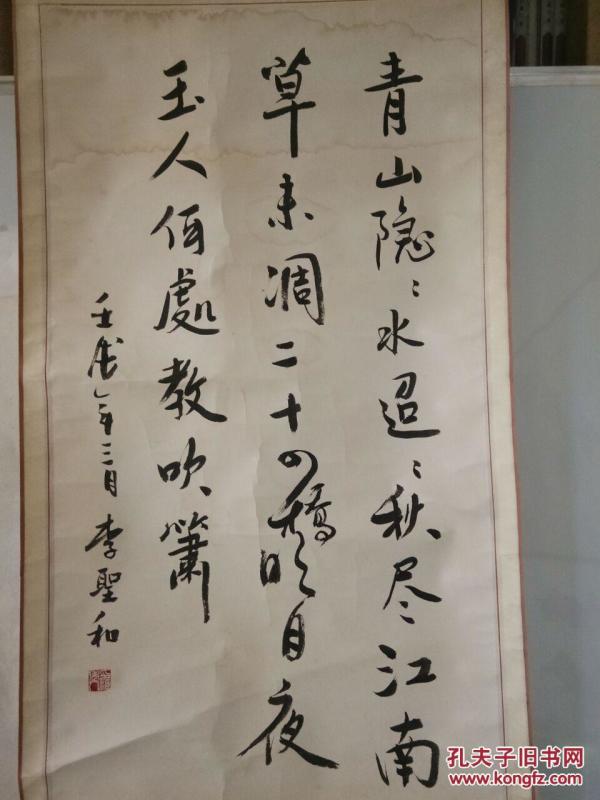 青山隐〻水迢〻秋尽江南
草未凋二十四橋明月夜
玉人何處教吹簫
壬戌年三月 李聖和
孔夫子旧书网
www.kongfz.com